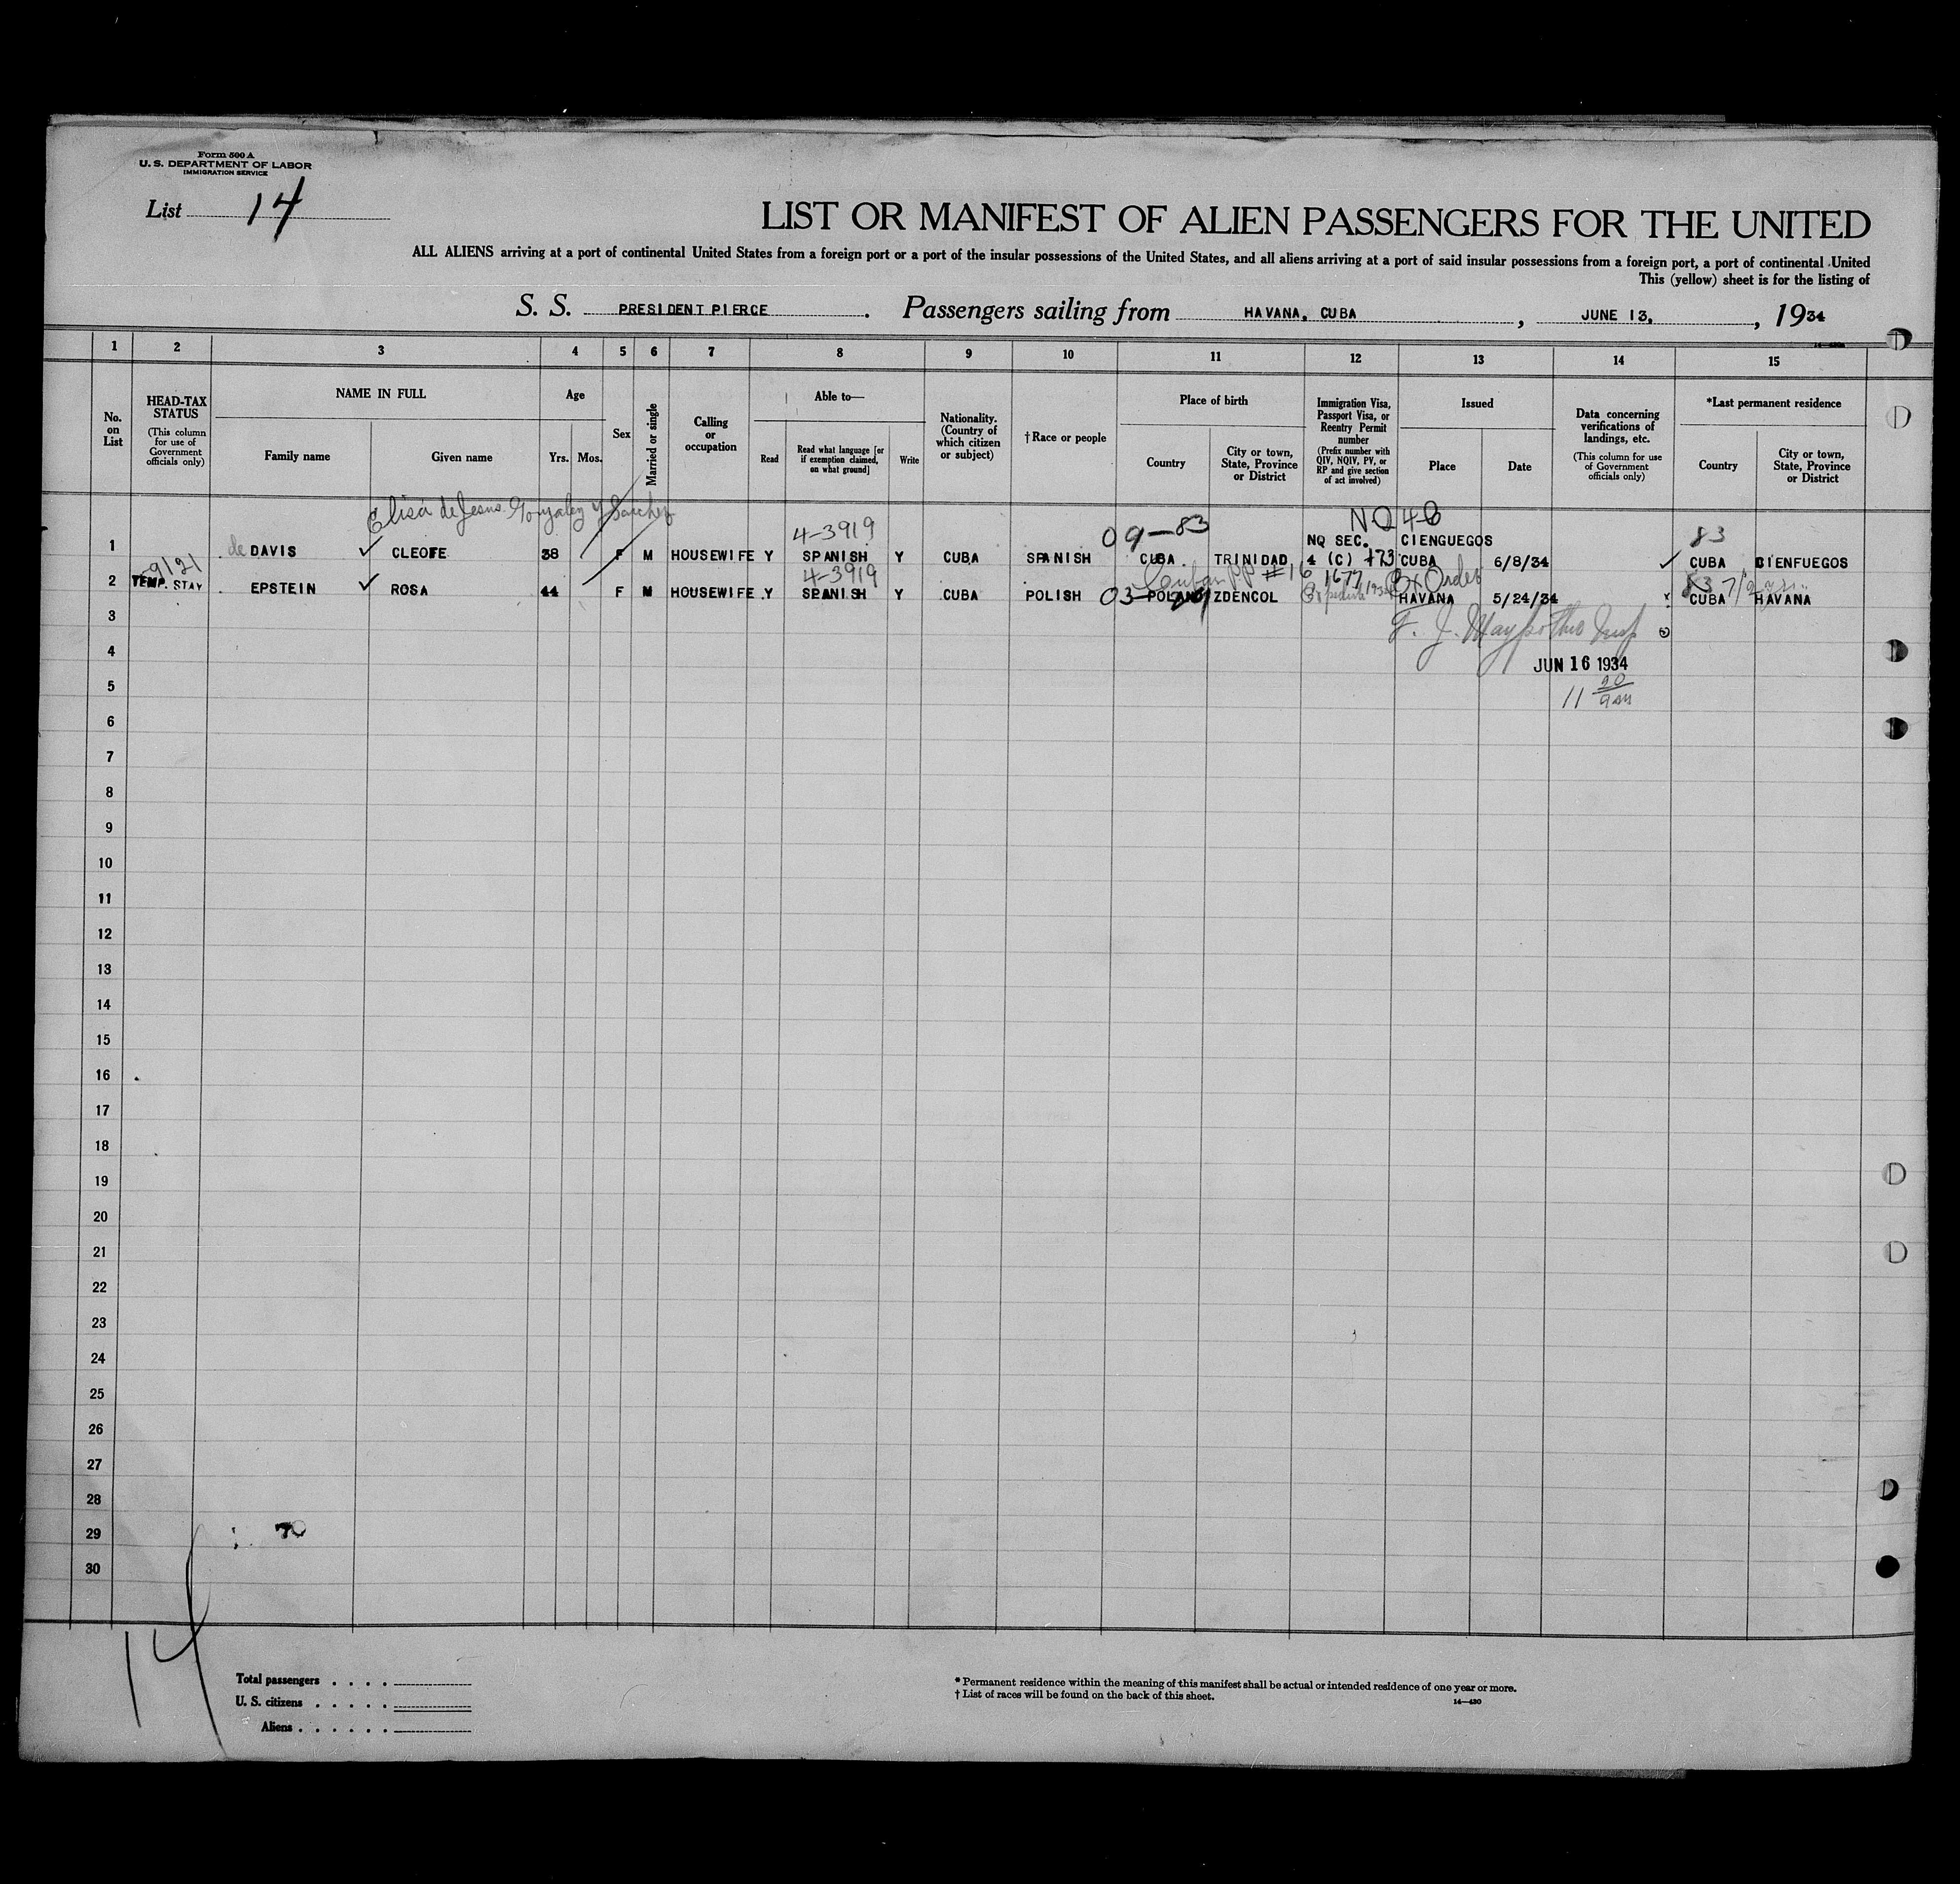 Form 500 A
U. S. DEPARTMENT OF LABOR
IMMIGRATION SERVICE
List 14
LIST OR MANIFEST OF ALIEN PASSENGERS FOR THE UNITED
ALL ALIENS arriving at a port of continental United States from a foreign port or a port of the insular possessions of the United States, and all aliens arriving at a port of said insular possessions from a foreign port, a port of continental United
This (yellow) sheet is for the listing of
S. S. PRESIDENT PIERCE. Passengers sailing from HAVANA, CUBA, JUNE 13, 1934
1 2 3 4 5 6 7 8 9 10 11 12 13 14 15
No. on List
HEAD-TAX STATUS
(This column for use of Government officials only)
NAME IN FULL
Family name
Given name
Age
Yrs. Mos.
Sex
Married or single
Calling or occupation
Able to—
Read
Read what language [or if exemption claimed, on what ground]
Write
Nationality. (Country of which citizen or subject)
†Race or people
Place of birth
Country
City or town, State, Province or District
Immigration Visa, Passport Visa, or Reentry Permit number
(Prefix number with QIV, NQIV, PV, or RP and give section of act involved)
Issued
Place
Date
Data concerning verifications of landings, etc.
(This column for use of Government officials only)
*Last permanent residence
Country
City or town, State, Province or District
Elisa de Jesus Gonzalez y Sanchez
4-3919 09-83 NQ 4-C 83
NQ SEC. CIENGUEGOS
1 de DAVIS ✓ CLEOFE 38 F M HOUSEWIFE Y SPANISH Y CUBA SPANISH CUBA TRINIDAD 4 (C) 173 CUBA 6/8/34 ✓ CUBA CIENFUEGOS
9121 4-3919 Cuban PP #16 1677 Ex Order 83
2 TEMP. STAY EPSTEIN ✓ ROSA 44 F M HOUSEWIFE Y SPANISH Y CUBA POLISH 03 POLAND ZDENCOL HAVANA 5/24/34 CUBA HAVANA
3
4
JUN 16 1934
5
11 20/am
6
7
8
9
10
11
12
13
14
15
16
17
18
19
20
21
22
23
24
25
26
27
28
29
30
14
Total passengers
U. S. citizens
Aliens
* Permanent residence within the meaning of this manifest shall be actual or intended residence of one year or more.
† List of races will be found on the back of this sheet.
14—430